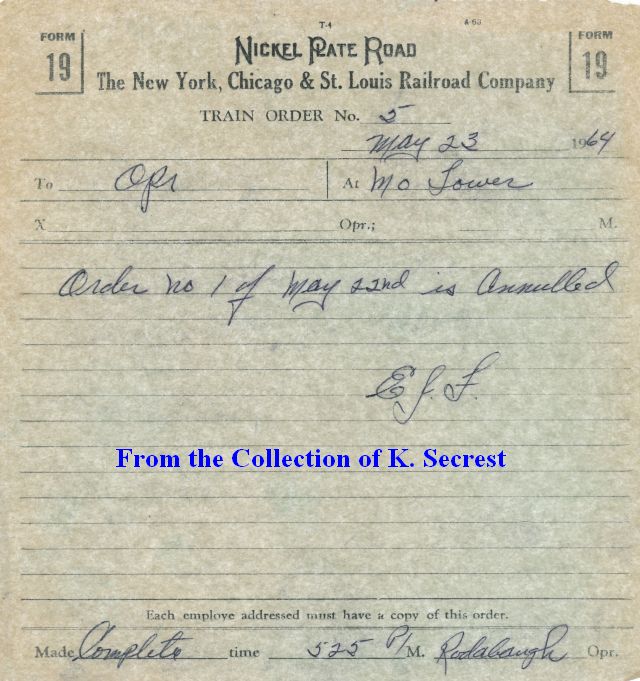 T-4 A-63
FORM 19 NICKEL PLATE ROAD FORM 19
The New York, Chicago & St. Louis Railroad Company
TRAIN ORDER No. 5
May 23 1964
To Opr At Mo Tower
X Opr.; M.
Order no 1 of May 22nd is Annulled
E J. F.
From the Collection of K. Secrest
Each employe addressed must have a copy of this order.
Made Complete time 525 P M. Rodabaugh Opr.